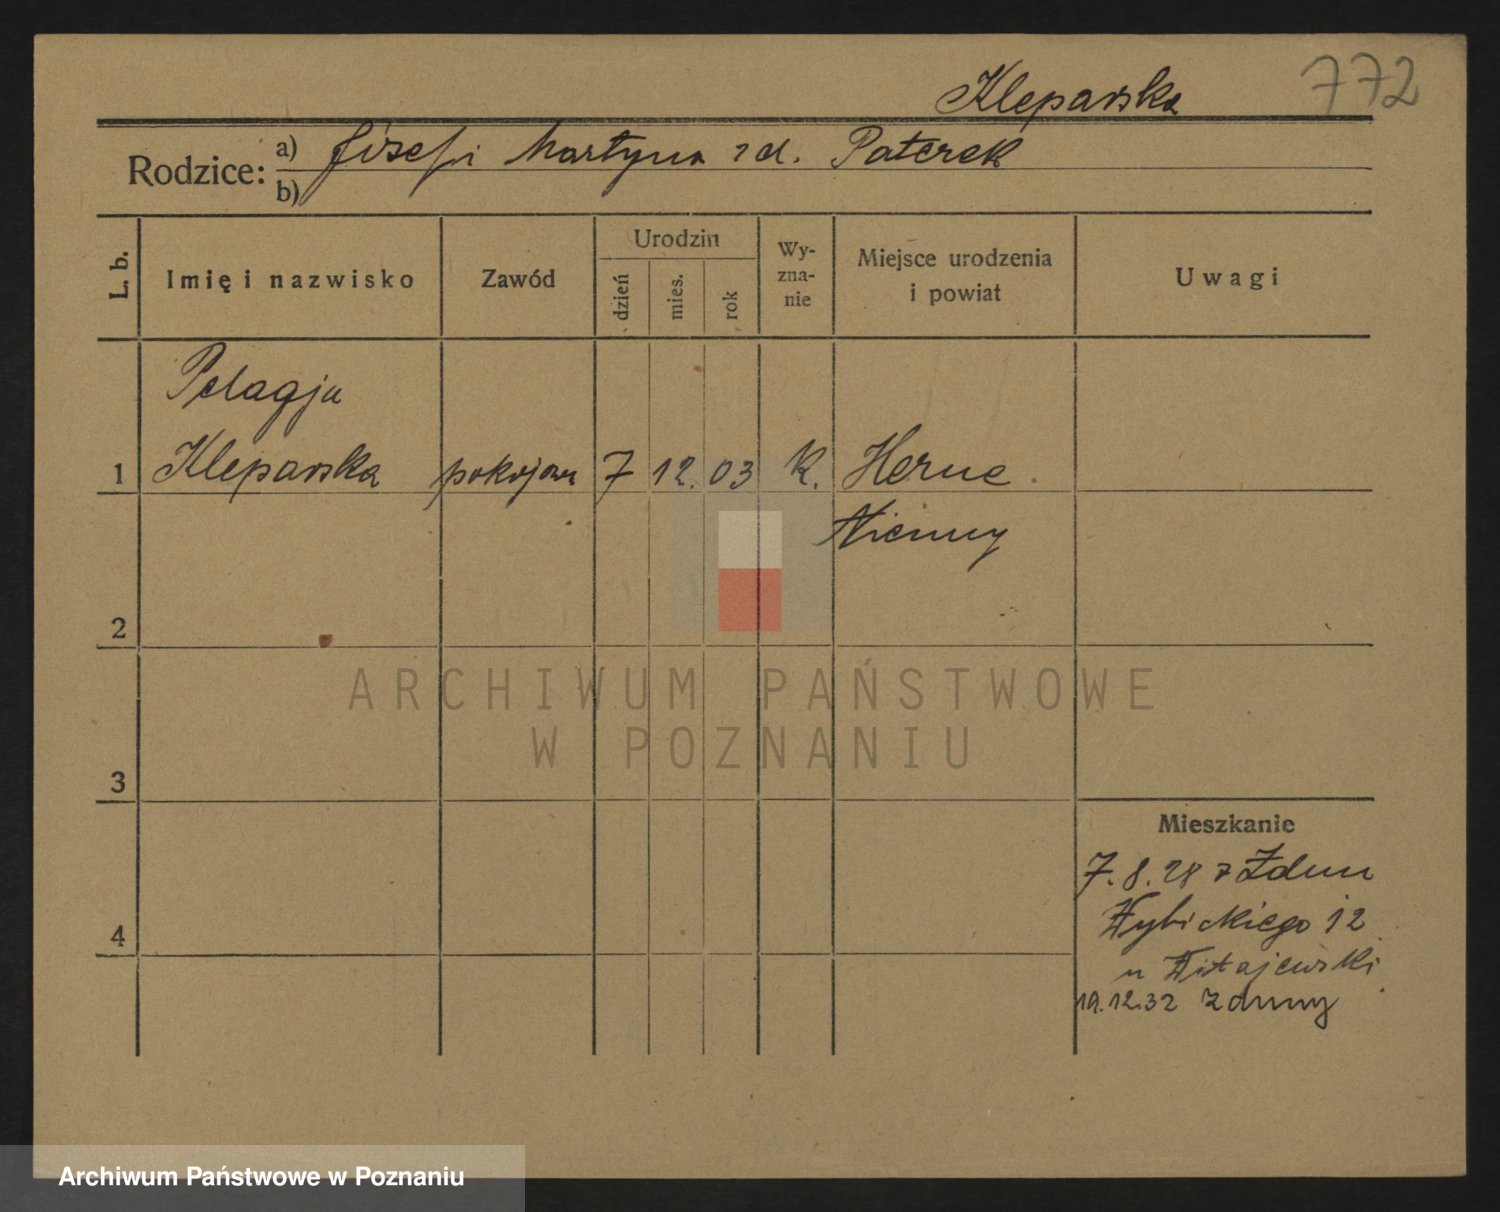 Kleparska 772
Rodzice: a) Józef i Martyna z d. Paterek
b)
L. b.
Imię i nazwisko
Zawód
Urodzin
dzień
mies.
rok
Wy-
zna-
nie
Miejsce urodzenia
i powiat
Uwagi
Pelagja
1 Kleparska pokojowa 7 12. 03 K. Herne
Niemcy
2
3
4
Mieszkanie
7. 8. 28 z Zdun
Wybickiego 12
u Witajewski
19.12.32 Zduny
ARCHIWUM PAŃSTWOWE
W POZNANIU
Archiwum Państwowe w Poznaniu